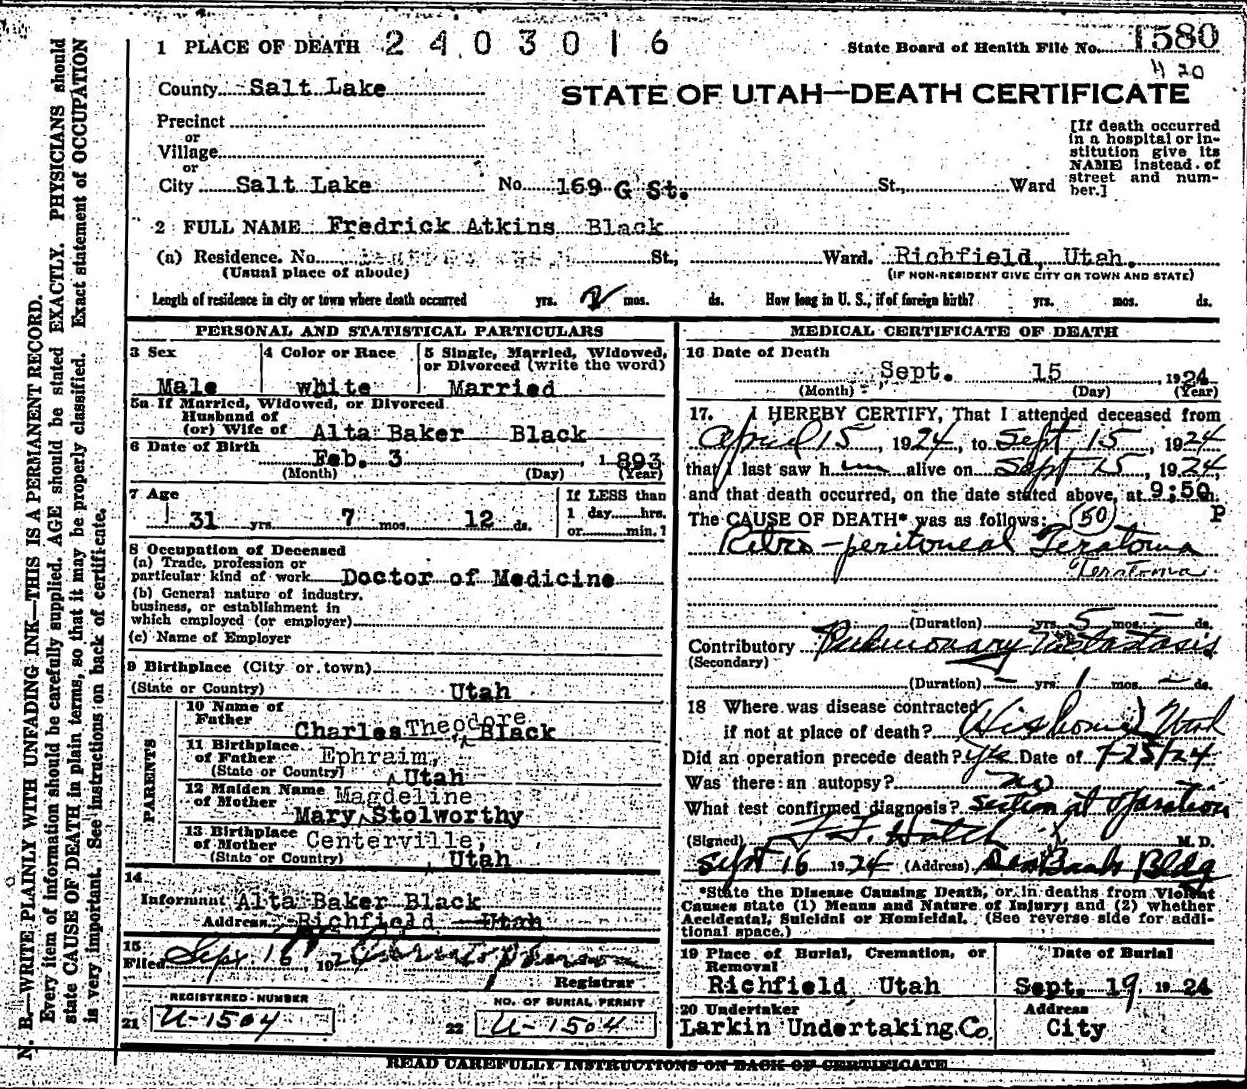 1 PLACE OF DEATH 2403016 State Board of Health File No. 1580
420
County Salt Lake
STATE OF UTAH—DEATH CERTIFICATE
Precinct
or
Village
or
City Salt Lake No. 169 G St. St., Ward
[If death occurred
in a hospital or in-
stitution give its
NAME instead of
street and num-
ber.]
2 FULL NAME Fredrick Atkins Black
(a) Residence. No. St., Ward. Richfield, Utah.
(Usual place of abode) (IF NON-RESIDENT GIVE CITY OR TOWN AND STATE)
Length of residence in city or town where death occurred yrs. mos. ds. How long in U. S., if of foreign birth? yrs. mos. ds.
PERSONAL AND STATISTICAL PARTICULARS
3 Sex
Male
4 Color or Race
white
5 Single, Married, Widowed,
or Divorced (write the word)
Married
5a If Married, Widowed, or Divorced
Husband of
(or) Wife of Alta Baker Black
6 Date of Birth
Feb. 3 , 1893
(Month) (Day) (Year)
7 Age
31 yrs 7 mos 12 ds.
If LESS than
1 day hrs.
or min.?
8 Occupation of Deceased
(a) Trade, profession or
particular kind of work Doctor of Medicine
(b) General nature of industry,
business, or establishment in
which employed (or employer)
(c) Name of Employer
9 Birthplace (City or town)
(State or Country) Utah
PARENTS
10 Name of
Father
Charles Theodore Black
11 Birthplace
of Father Ephraim,
(State or Country) Utah
12 Maiden Name
of Mother Magdeline
Mary Stolworthy
13 Birthplace
of Mother Centerville,
(State or Country) Utah
14
Informant Alta Baker Black
Address Richfield Utah
15
Filed Sept. 16, 1924
Registrar
REGISTERED NUMBER
21 U-1504
NO. OF BURIAL PERMIT
22 U-1504
MEDICAL CERTIFICATE OF DEATH
16 Date of Death
Sept. 15 , 1924
(Month) (Day) (Year)
17. I HEREBY CERTIFY, That I attended deceased from
April 15, 1924, to Sept 15, 1924
that I last saw him alive on Sept 15, 1924,
and that death occurred, on the date stated above, at 9:50 m.
P
The CAUSE OF DEATH* was as follows: (50)
Retro-peritoneal Teratoma
Teratoma
(Duration) yrs. 5 mos. — ds.
Contributory Pulmonary Metastasis
(Secondary)
(Duration) — yrs. 1 mos — ds.
18 Where was disease contracted
if not at place of death? His home Utah
Did an operation precede death? Yes Date of 7-25/24
Was there an autopsy? no
What test confirmed diagnosis? section at operation
(Signed) Hatch M. D.
Sept 16 1924 (Address) Des Bank Bldg
*State the Disease Causing Death, or in deaths from Violent
Causes state (1) Means and Nature of Injury; and (2) whether
Accidental, Suicidal or Homicidal. (See reverse side for addi-
tional space.)
19 Place of Burial, Cremation, or
Removal
Richfield Utah
Date of Burial
Sept. 19 1924
20 Undertaker
Larkin Undertaking Co.
Address
City
READ CAREFULLY INSTRUCTIONS ON BACK OF CERTIFICATE
N. B.—WRITE PLAINLY WITH UNFADING INK—THIS IS A PERMANENT RECORD.
Every item of information should be carefully supplied. AGE should be stated EXACTLY. PHYSICIANS should
state CAUSE OF DEATH in plain terms, so that it may be properly classified. Exact statement of OCCUPATION
is very important. See instructions on back of certificate.